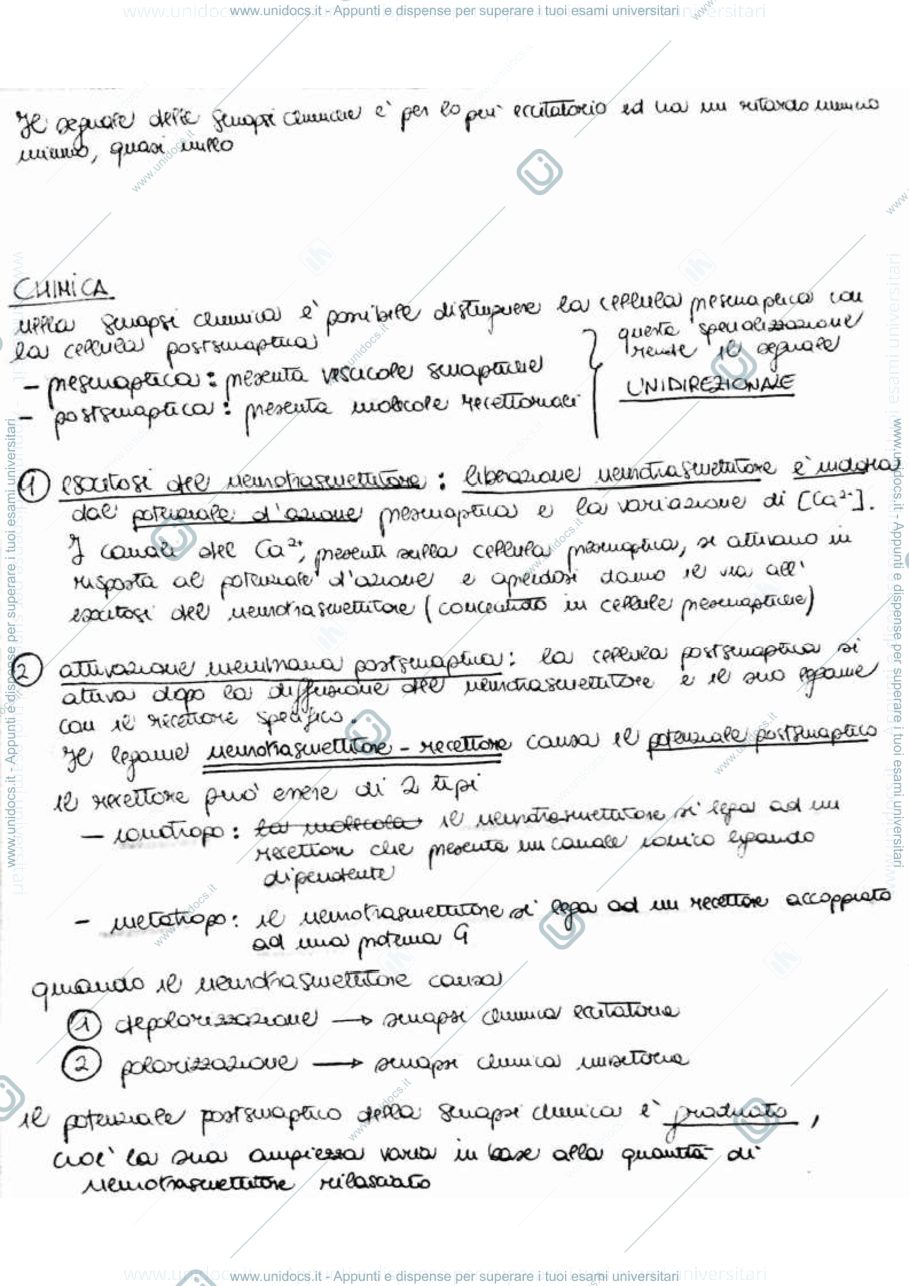 www.unidocs.it - Appunti e dispense per superare i tuoi esami universitari
Il segnale delle sinapsi chimiche è per lo più eccitatorio ed ha un ritardo minimo
minimo, quasi nullo
CHIMICA
nella sinapsi chimica è possibile distinguere la cellula presinaptica con
la cellula postsinaptica
- presinaptica: presenta vescicole sinaptiche
- postsinaptica: presenta molecole recettoriali
questa specializzazione
rende il segnale
UNIDIREZIONALE
1 esocitosi del neurotrasmettitore: liberazione neurotrasmettitore è indotta
dal potenziale d'azione presinaptica e la variazione di [Ca²⁺].
I canali del Ca²⁺, presenti sulla cellula presinaptica, si attivano in
risposta al potenziale d'azione e aprendosi danno il via all'
esocitosi del neurotrasmettitore (concentrato in cellule presinaptiche)
2 attivazione membrana postsinaptica: la cellula postsinaptica si
attiva dopo la diffusione del neurotrasmettitore e il suo legame
con il recettore specifico.
Il legame neurotrasmettitore - recettore causa il potenziale postsinaptico
il recettore può essere di 2 tipi
- ionotropo: la molecola il neurotrasmettitore si lega ad un
recettore che presenta un canale ionico ligando
dipendente
- metatropo: il neurotrasmettitore si lega ad un recettore accoppiato
ad una proteina G
quando il neurotrasmettitore causa
1 depolarizzazione → sinapsi chimica eccitatoria
2 polarizzazione → sinapsi chimica inibitoria
il potenziale postsinaptico della sinapsi chimica è graduato,
cioè la sua ampiezza varia in base alla quantità di
neurotrasmettitore rilasciato
www.unidocs.it - Appunti e dispense per superare i tuoi esami universitari